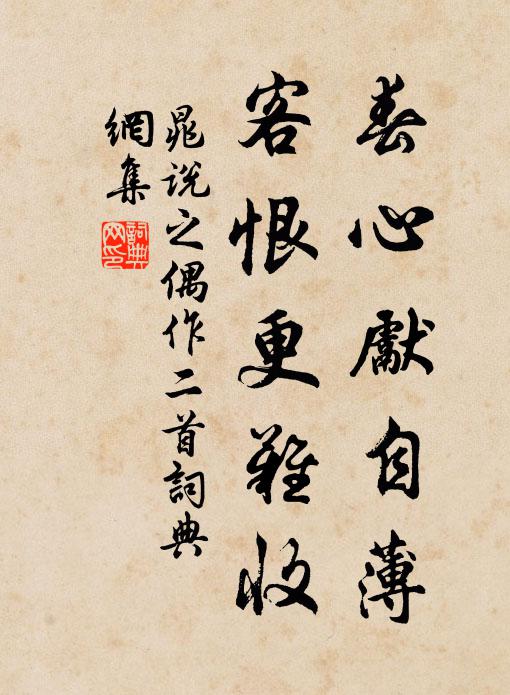 春心獻自薄
客恨更難收
晁說之偶作二首詞典
網集
詞典
网印